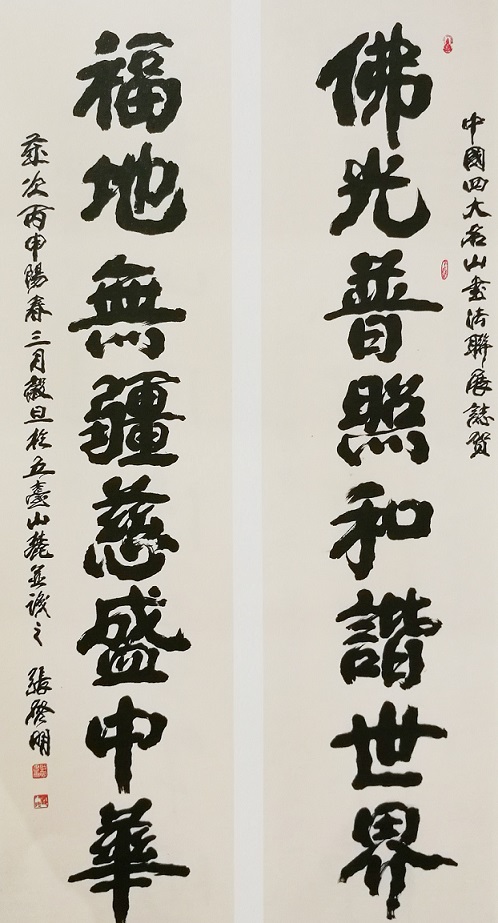 中國四大名山書法聯展誌贺
佛光普照和諧世界
福地無疆慈盛中華
歲次丙申陽春三月穀旦於五臺山麓並識之
張啓明